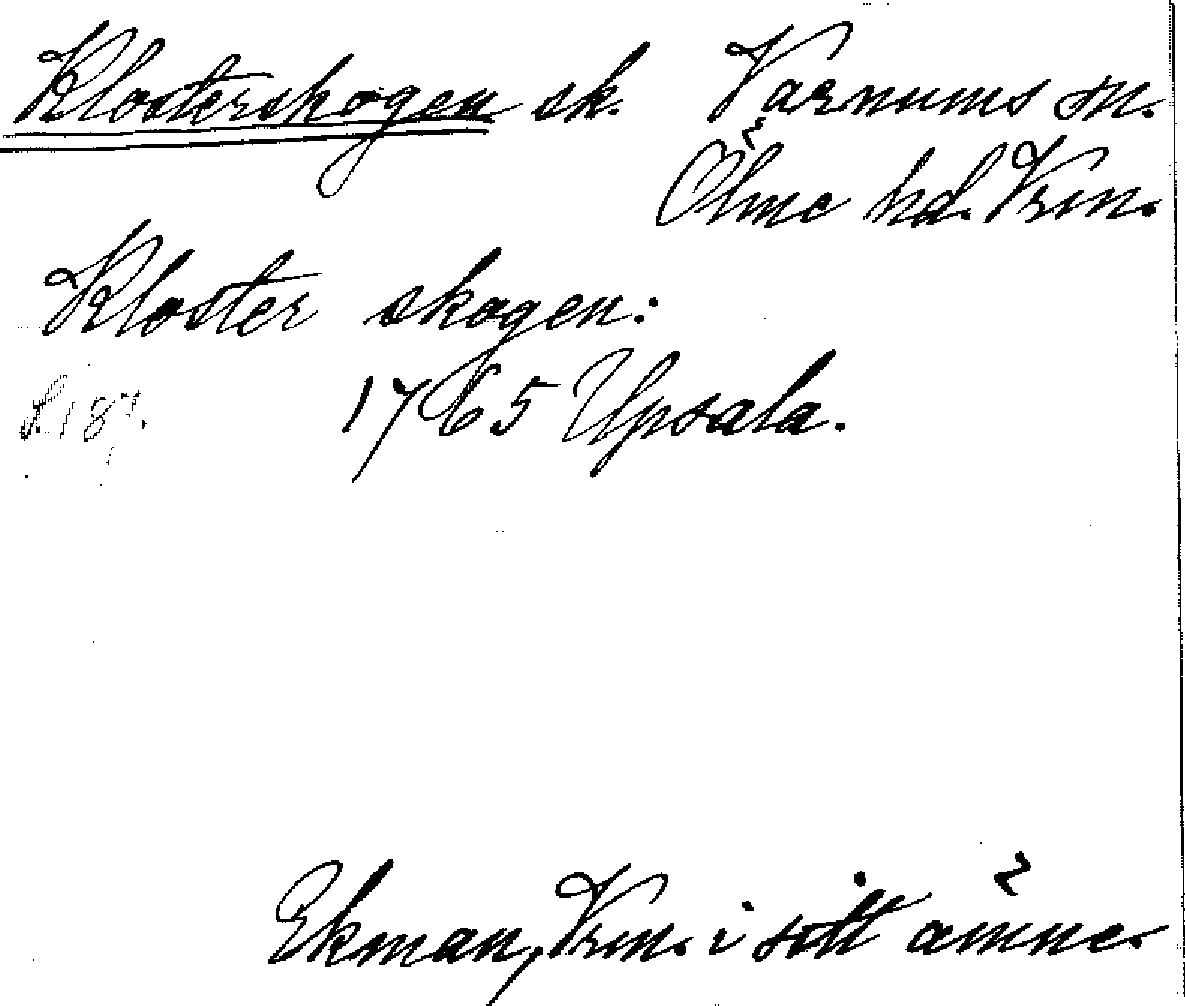 Klosterskogen sk. Varnums sn.
Ölme hd. Vrm.
Kloster skogen:
S. 187. 1765 Upsala.
Ekman, Vrm. i sitt ämne.